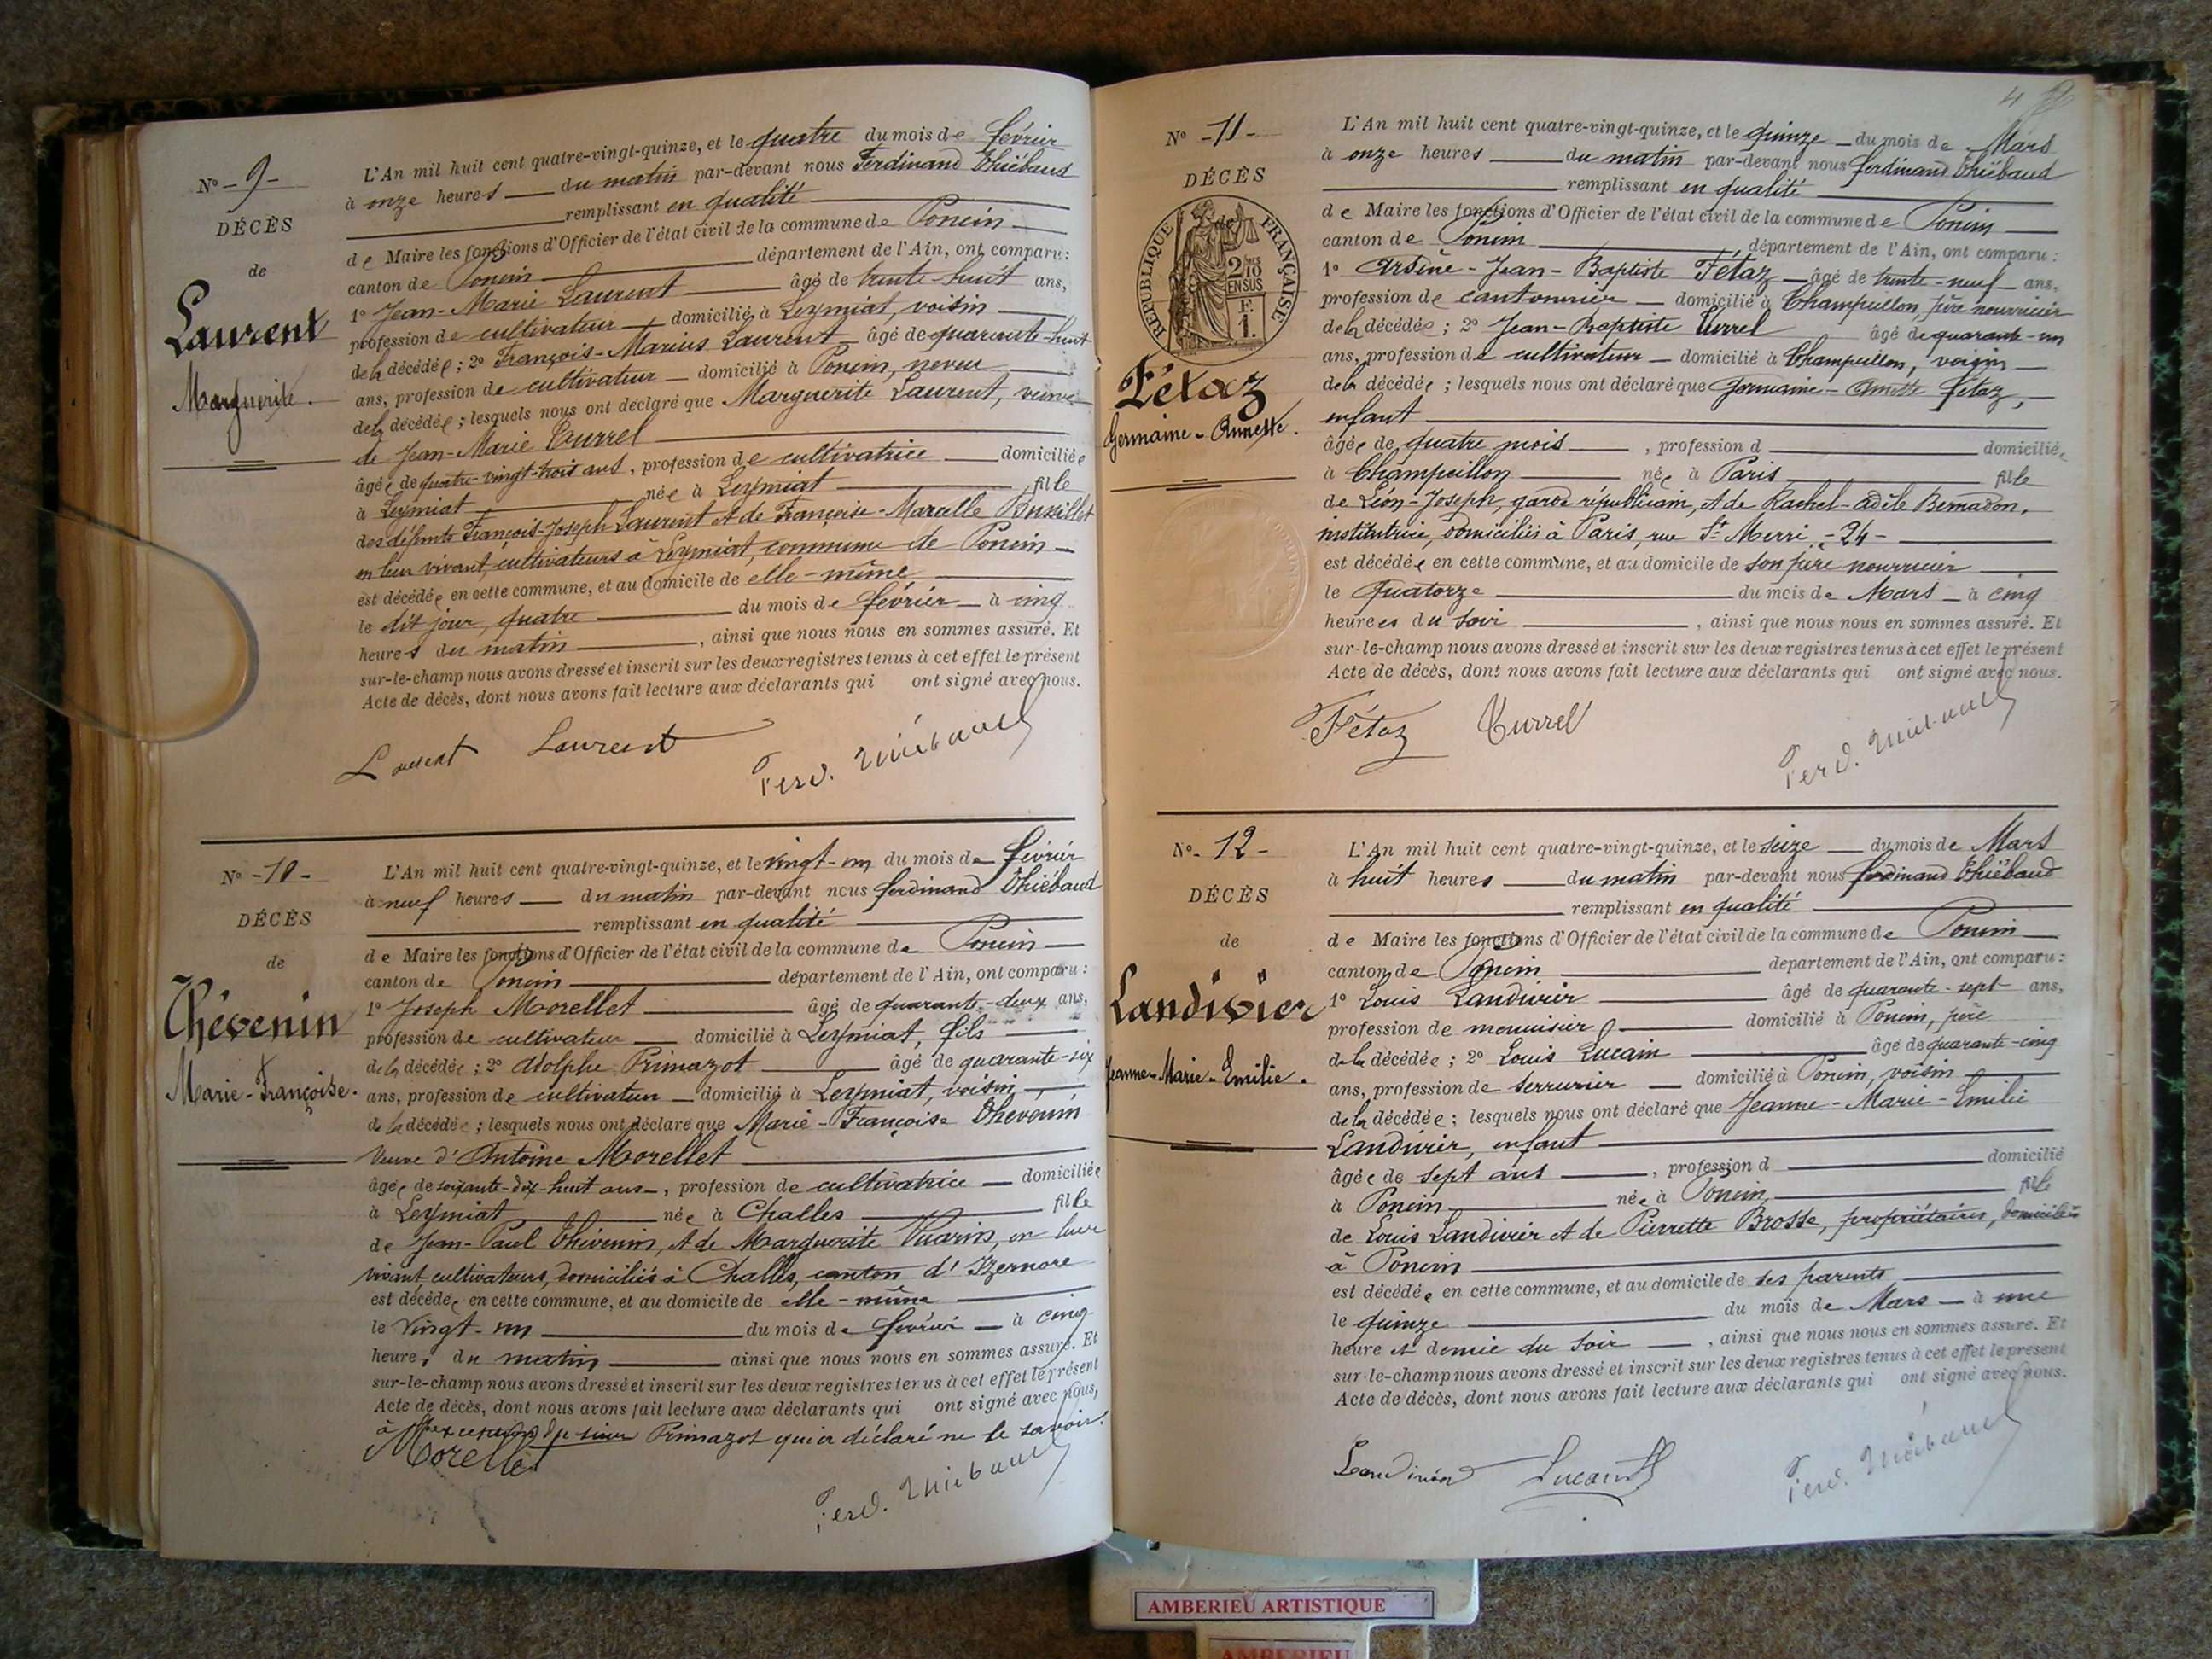 N° - 9 -
DÉCÈS
de
Laurent
Marguerite.
L'An mil huit cent quatre-vingt-quinze, et le quatre du mois de février
à onze heures du matin par-devant nous Ferdinand Thiébaud
remplissant en qualité
de Maire les fonctions d'Officier de l'état civil de la commune de Poncin
canton de Poncin département de l'Ain, ont comparu :
1° Jean-Marie Laurent âgé de trente-huit ans,
profession de cultivateur domicilié à Leymiat, voisin
de la décédée ; 2° François-Marius Laurent âgé de quarante-huit
ans, profession de cultivateur domicilié à Poncin, neveu
de la décédée ; lesquels nous ont déclaré que Marguerite Laurent, veuve
de Jean-Marie Turrel
âgée de quatre-vingt-trois ans, profession de cultivatrice domiciliée
à Leymiat née à Leymiat fille
des défunts François-Joseph Laurent et de Françoise-Marcelle
en leur vivant, cultivateurs à Leymiat, commune de Poncin
est décédée en cette commune, et au domicile de elle-même
le dit jour, quatre du mois de février à cinq
heures du matin, ainsi que nous nous en sommes assuré. Et
sur-le-champ nous avons dressé et inscrit sur les deux registres tenus à cet effet le présent
Acte de décès, dont nous avons fait lecture aux déclarants qui ont signé avec nous.
Laurent Laurent Ferd. Thiébaud
N° - 10 -
DÉCÈS
de
Thévenin
Marie-Françoise.
L'An mil huit cent quatre-vingt-quinze, et le vingt-un du mois de février
à neuf heures du matin par-devant nous Ferdinand Thiébaud
remplissant en qualité
de Maire les fonctions d'Officier de l'état civil de la commune de Poncin
canton de Poncin département de l'Ain, ont comparu :
1° Joseph Morellet âgé de quarante-deux ans,
profession de cultivateur domicilié à Leymiat, fils
de la décédée ; 2° Adolphe Primazot âgé de quarante-six
ans, profession de cultivateur domicilié à Leymiat, voisin
de la décédée ; lesquels nous ont déclaré que Marie-Françoise Thévenin
Veuve d'Antoine Morellet
âgée de soixante-dix-huit ans, profession de cultivatrice domiciliée
à Leymiat née à Challes fille
de Jean-Paul Thévenin, et de Marguerite Vuarin, en leur
vivant cultivateurs, domiciliés à Challes, canton d'Izernore
est décédée en cette commune, et au domicile de elle-même
le vingt-un du mois de février à cinq
heures du matin ainsi que nous nous en sommes assuré. Et
sur-le-champ nous avons dressé et inscrit sur les deux registres tenus à cet effet le présent
Acte de décès, dont nous avons fait lecture aux déclarants qui ont signé avec nous,
à l'exception du sieur Primazot qui a déclaré ne le savoir.
Morellet Ferd. Thiébaud
4
N° - 11 -
DÉCÈS
de
RÉPUBLIQUE FRANÇAISE
2/10 EN SUS
F.
1.
Fétaz
Germaine-Annette.
L'An mil huit cent quatre-vingt-quinze, et le quinze du mois de Mars
à onze heures du matin par-devant nous Ferdinand Thiébaud
remplissant en qualité
de Maire les fonctions d'Officier de l'état civil de la commune de Poncin
canton de Poncin département de l'Ain, ont comparu :
1° Arsène-Jean-Baptiste Fétaz âgé de trente-neuf ans,
profession de cantonnier domicilié à Champeillon, père nourricier
de la décédée ; 2° Jean-Baptiste Turrel âgé de quarante-un
ans, profession de cultivateur domicilié à Champeillon, voisin
de la décédée ; lesquels nous ont déclaré que Germaine-Annette Fétaz,
enfant
âgée de quatre mois, profession d domiciliée
à Champeillon née à Paris fille
de Léon-Joseph, garde républicain, et de Rachel-Adèle Bernadon,
institutrice, domiciliés à Paris, rue St Merri, - 24 -
est décédée en cette commune, et au domicile de son père nourricier
le Quatorze du mois de Mars à cinq
heures du soir, ainsi que nous nous en sommes assuré. Et
sur-le-champ nous avons dressé et inscrit sur les deux registres tenus à cet effet le présent
Acte de décès, dont nous avons fait lecture aux déclarants qui ont signé avec nous.
Fétaz Turrel Ferd. Thiébaud
N° - 12 -
DÉCÈS
de
Landivier
Jeanne-Marie-Emilie.
L'An mil huit cent quatre-vingt-quinze, et le seize du mois de Mars
à huit heures du matin par-devant nous Ferdinand Thiébaud
remplissant en qualité
de Maire les fonctions d'Officier de l'état civil de la commune de Poncin
canton de Poncin département de l'Ain, ont comparu :
1° Louis Landivier âgé de quarante-sept ans,
profession de menuisier domicilié à Poncin, père
de la décédée ; 2° Louis Lucain âgé de quarante-cinq
ans, profession de serrurier domicilié à Poncin, voisin
de la décédée ; lesquels nous ont déclaré que Jeanne-Marie-Emilie
Landivier, enfant
âgée de sept ans, profession d domicilié
à Poncin née à Poncin, fille
de Louis Landivier et de Pierrette Brosse, propriétaires, domiciliés
à Poncin
est décédée en cette commune, et au domicile de ses parents
le quinze du mois de Mars à une
heure et demie du soir, ainsi que nous nous en sommes assuré. Et
sur-le-champ nous avons dressé et inscrit sur les deux registres tenus à cet effet le présent
Acte de décès, dont nous avons fait lecture aux déclarants qui ont signé avec nous.
Landivier Lucain Ferd. Thiébaud
AMBERIEU ARTISTIQUE
AMBERIEU